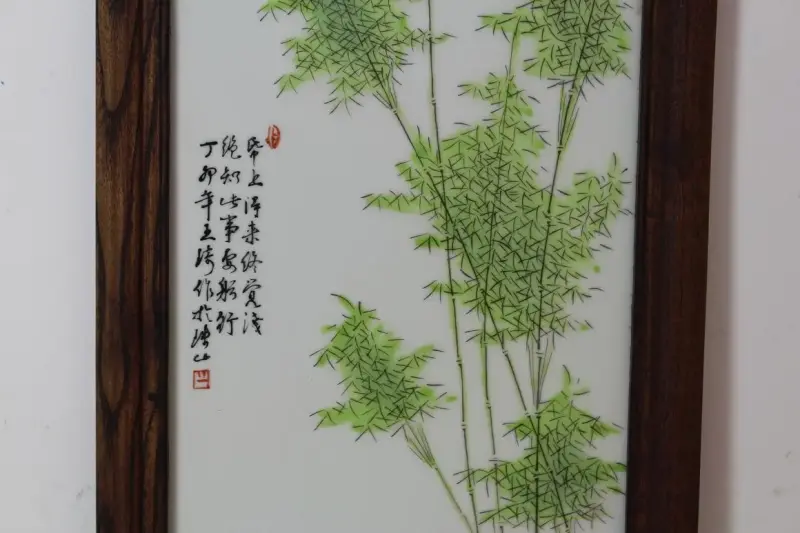 帋上得来终觉浅
绝知此事要躬行
丁卯年王琦作於珠山